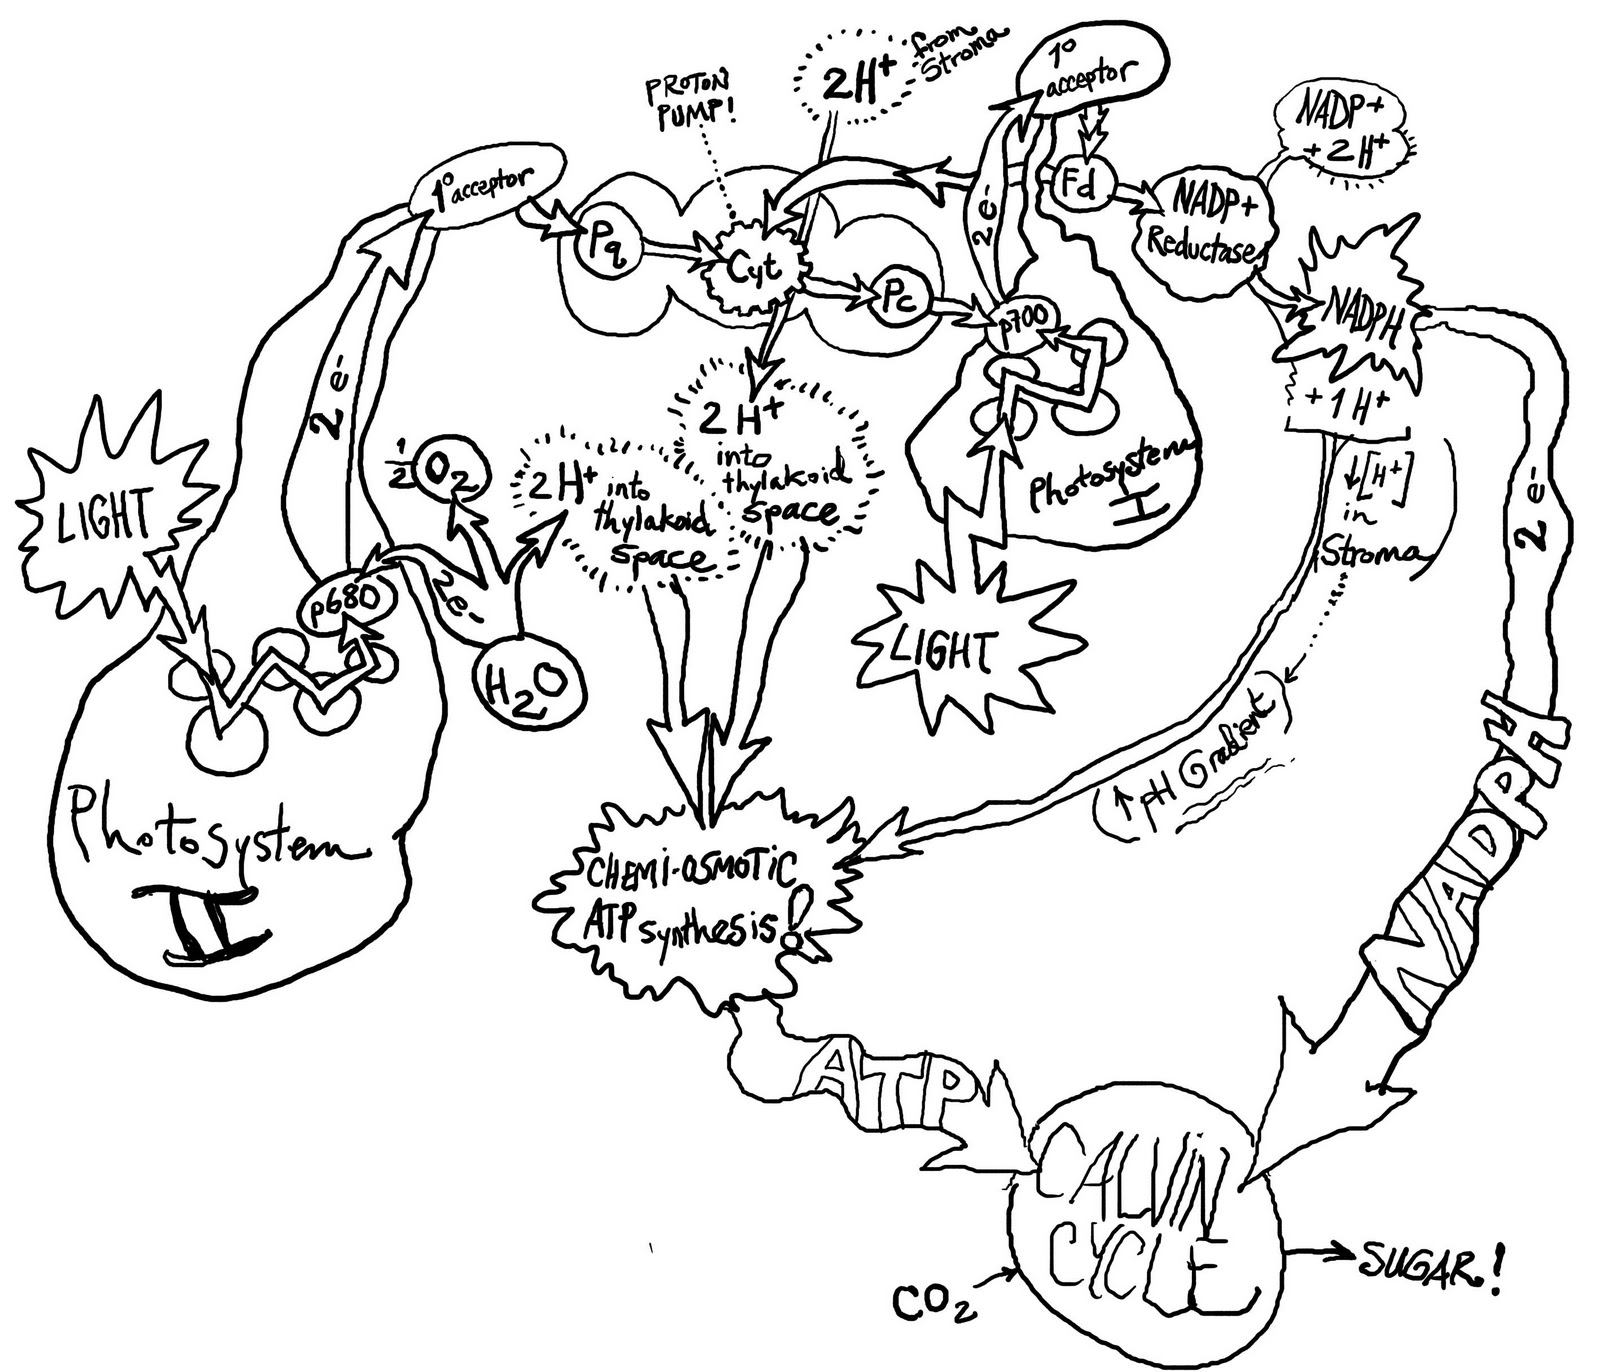 PROTON
PUMP!
2H+
from
Stroma
1° acceptor
1°
acceptor
NADP+
+ 2H+
Pq
Cyt
Pc
Fd
NADP+
Reductase
2e-
p700
NADPH
+ 1H+
↓[H+]
in
Stroma
2 e-
2 e-
LIGHT
1/2 O2
2 H+ into
thylakoid
space
2 H+
into
thylakoid
space
Photosystem
I
p680
2e-
H2O
LIGHT
(↑ pH Gradient)
Photosystem
II
CHEMI-OSMOTIC
ATP synthesis!
NADPH
ATP
CALVIN
CYCLE
CO2
SUGAR!